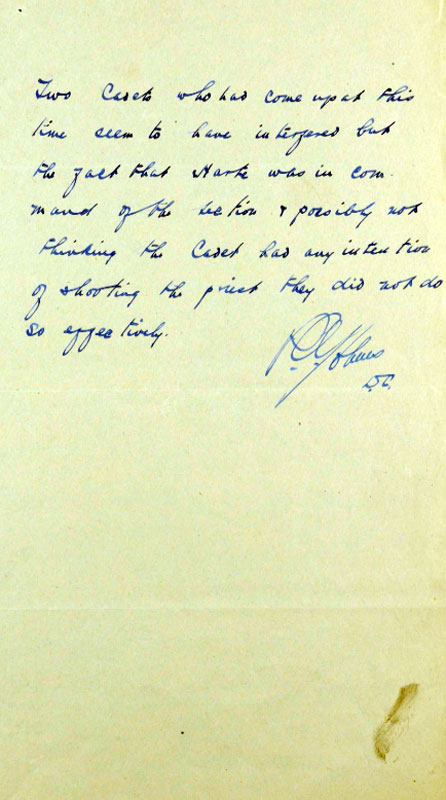 Two Cadets who had come up at this
time seem to have interfered but
the fact that Harte was in com-
mand of the section & possibly not
thinking the Cadet had any intention
of shooting the priest they did not do
so effectively.
D.C.